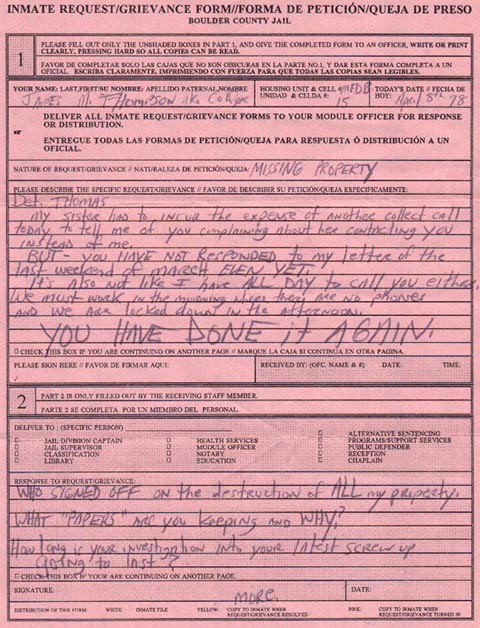 INMATE REQUEST/GRIEVANCE FORM//FORMA DE PETICIÓN/QUEJA DE PRESO
BOULDER COUNTY JAIL
1
PLEASE FILL OUT ONLY THE UNSHADED BOXES IN PART 1, AND GIVE THE COMPLETED FORM TO AN OFFICER, WRITE OR PRINT
CLEARLY, PRESSING HARD SO ALL COPIES CAN BE READ.
FAVOR DE COMPLETAR SOLO LAS CAJAS QUE NO SON OBSCURAS EN LA PARTE NO.1, Y DAR ESTA FORMA COMPLETA A UN
OFICIAL. ESCRIBA CLARAMENTE, IMPRIMIENDO CON FUERZA PARA QUE TODAS LAS COPIAS SEAN LEGIBLES.
YOUR NAME: LAST,FIRST/SU NOMBRE: APELLIDO PATERNAL,NOMBRE
James M. Thompson aka
HOUSING UNIT & CELL #
UNIDAD & CELDA #:
15
TODAY'S DATE // FECHA DE
HOY: April 8th 98
DELIVER ALL INMATE REQUEST/GRIEVANCE FORMS TO YOUR MODULE OFFICER FOR RESPONSE
OR DISTRIBUTION.
or
ENTREGUE TODAS LAS FORMAS DE PETICIÓN/QUEJA PARA RESPUESTA Ó DISTRIBUCIÓN A UN
OFICIAL.
NATURE OF REQUEST/GRIEVANCE // NATURALEZA DE PETICIÓN/QUEJA: MISSING PROPERTY
PLEASE DESCRIBE THE SPECIFIC REQUEST/GRIEVANCE // FAVOR DE DESCRIBIR SU PETICIÓN/QUEJA ESPECIFICAMENTE:
Det. THOMAS
My sister had to incur the expense of another collect call
today to tell me of you complaining about her contacting you
instead of me.
BUT - you HAVE NOT RESPONDED to my letter of the
last weekend of MARCH EVEN YET.
It's also not like I have ALL DAY to call you either.
We must work in the morning where there are no phones
AND we are locked down in the afternoon.
YOU HAVE DONE it AGAIN.
CHECK THIS BOX IF YOU ARE CONTINUING ON ANOTHER PAGE // MARQUE LA CAJA SI CONTINUA EN OTRA PAGINA.
PLEASE SIGN HERE // FAVOR DE FIRMAR AQUI:
RECEIVED BY: (OFC. NAME & #)
DATE:
TIME:
2
PART 2 IS ONLY FILLED OUT BY THE RECEIVING STAFF MEMBER.
PARTE 2 SE COMPLETA POR UN MIEMBRO DEL PERSONAL.
DELIVER TO : (SPECIFIC PERSON)
JAIL DIVISION CAPTAIN
JAIL SUPERVISOR
CLASSIFICATION
LIBRARY
HEALTH SERVICES
MODULE OFFICER
NOTARY
EDUCATION
ALTERNATIVE SENTENCING
PROGRAMS/SUPPORT SERVICES
PUBLIC DEFENDER
RECEPTION
CHAPLAIN
RESPONSE TO REQUEST/GRIEVANCE:
WHO SIGNED OFF on the destruction of ALL my property.
WHAT "PAPERS" ARE you keeping and WHY?
How long is your investigation into your latest screw up
going to last?
CHECK THIS BOX IF YOUR ARE CONTINUING ON ANOTHER PAGE.
SIGNATURE:
more
DATE:
DISTRIBUTION OF THIS FORM
WHITE: INMATE FILE
YELLOW: COPY TO INMATE WHEN
REQUEST/GRIEVANCE RESOLVED
PINK: COPY TO INMATE WHEN
REQUEST/GRIEVANCE TURNED IN